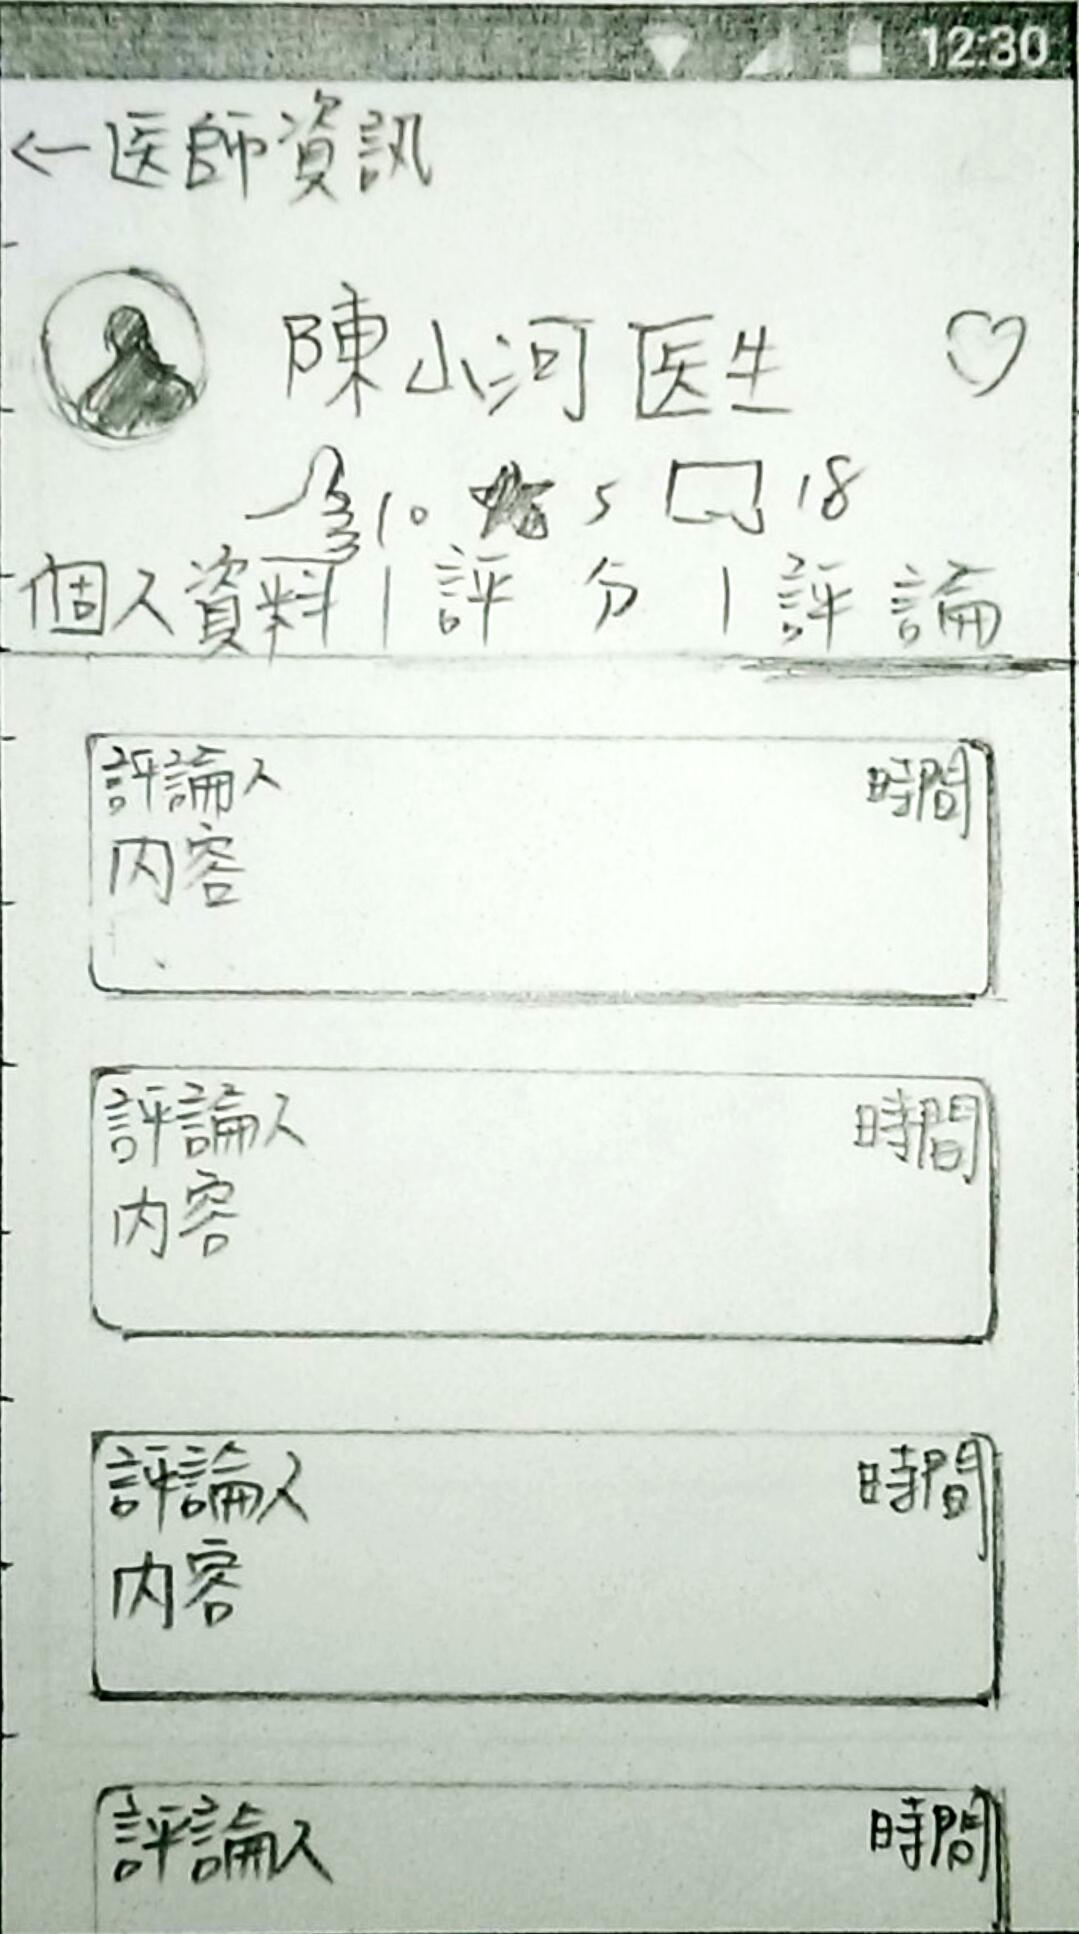 12:30
←医師資訊
陳小河医生
10 5 18
個人資料 | 評分 | 評論
評論人 時間
内容
評論人 時間
内容
評論人 時間
内容
評論人 時間